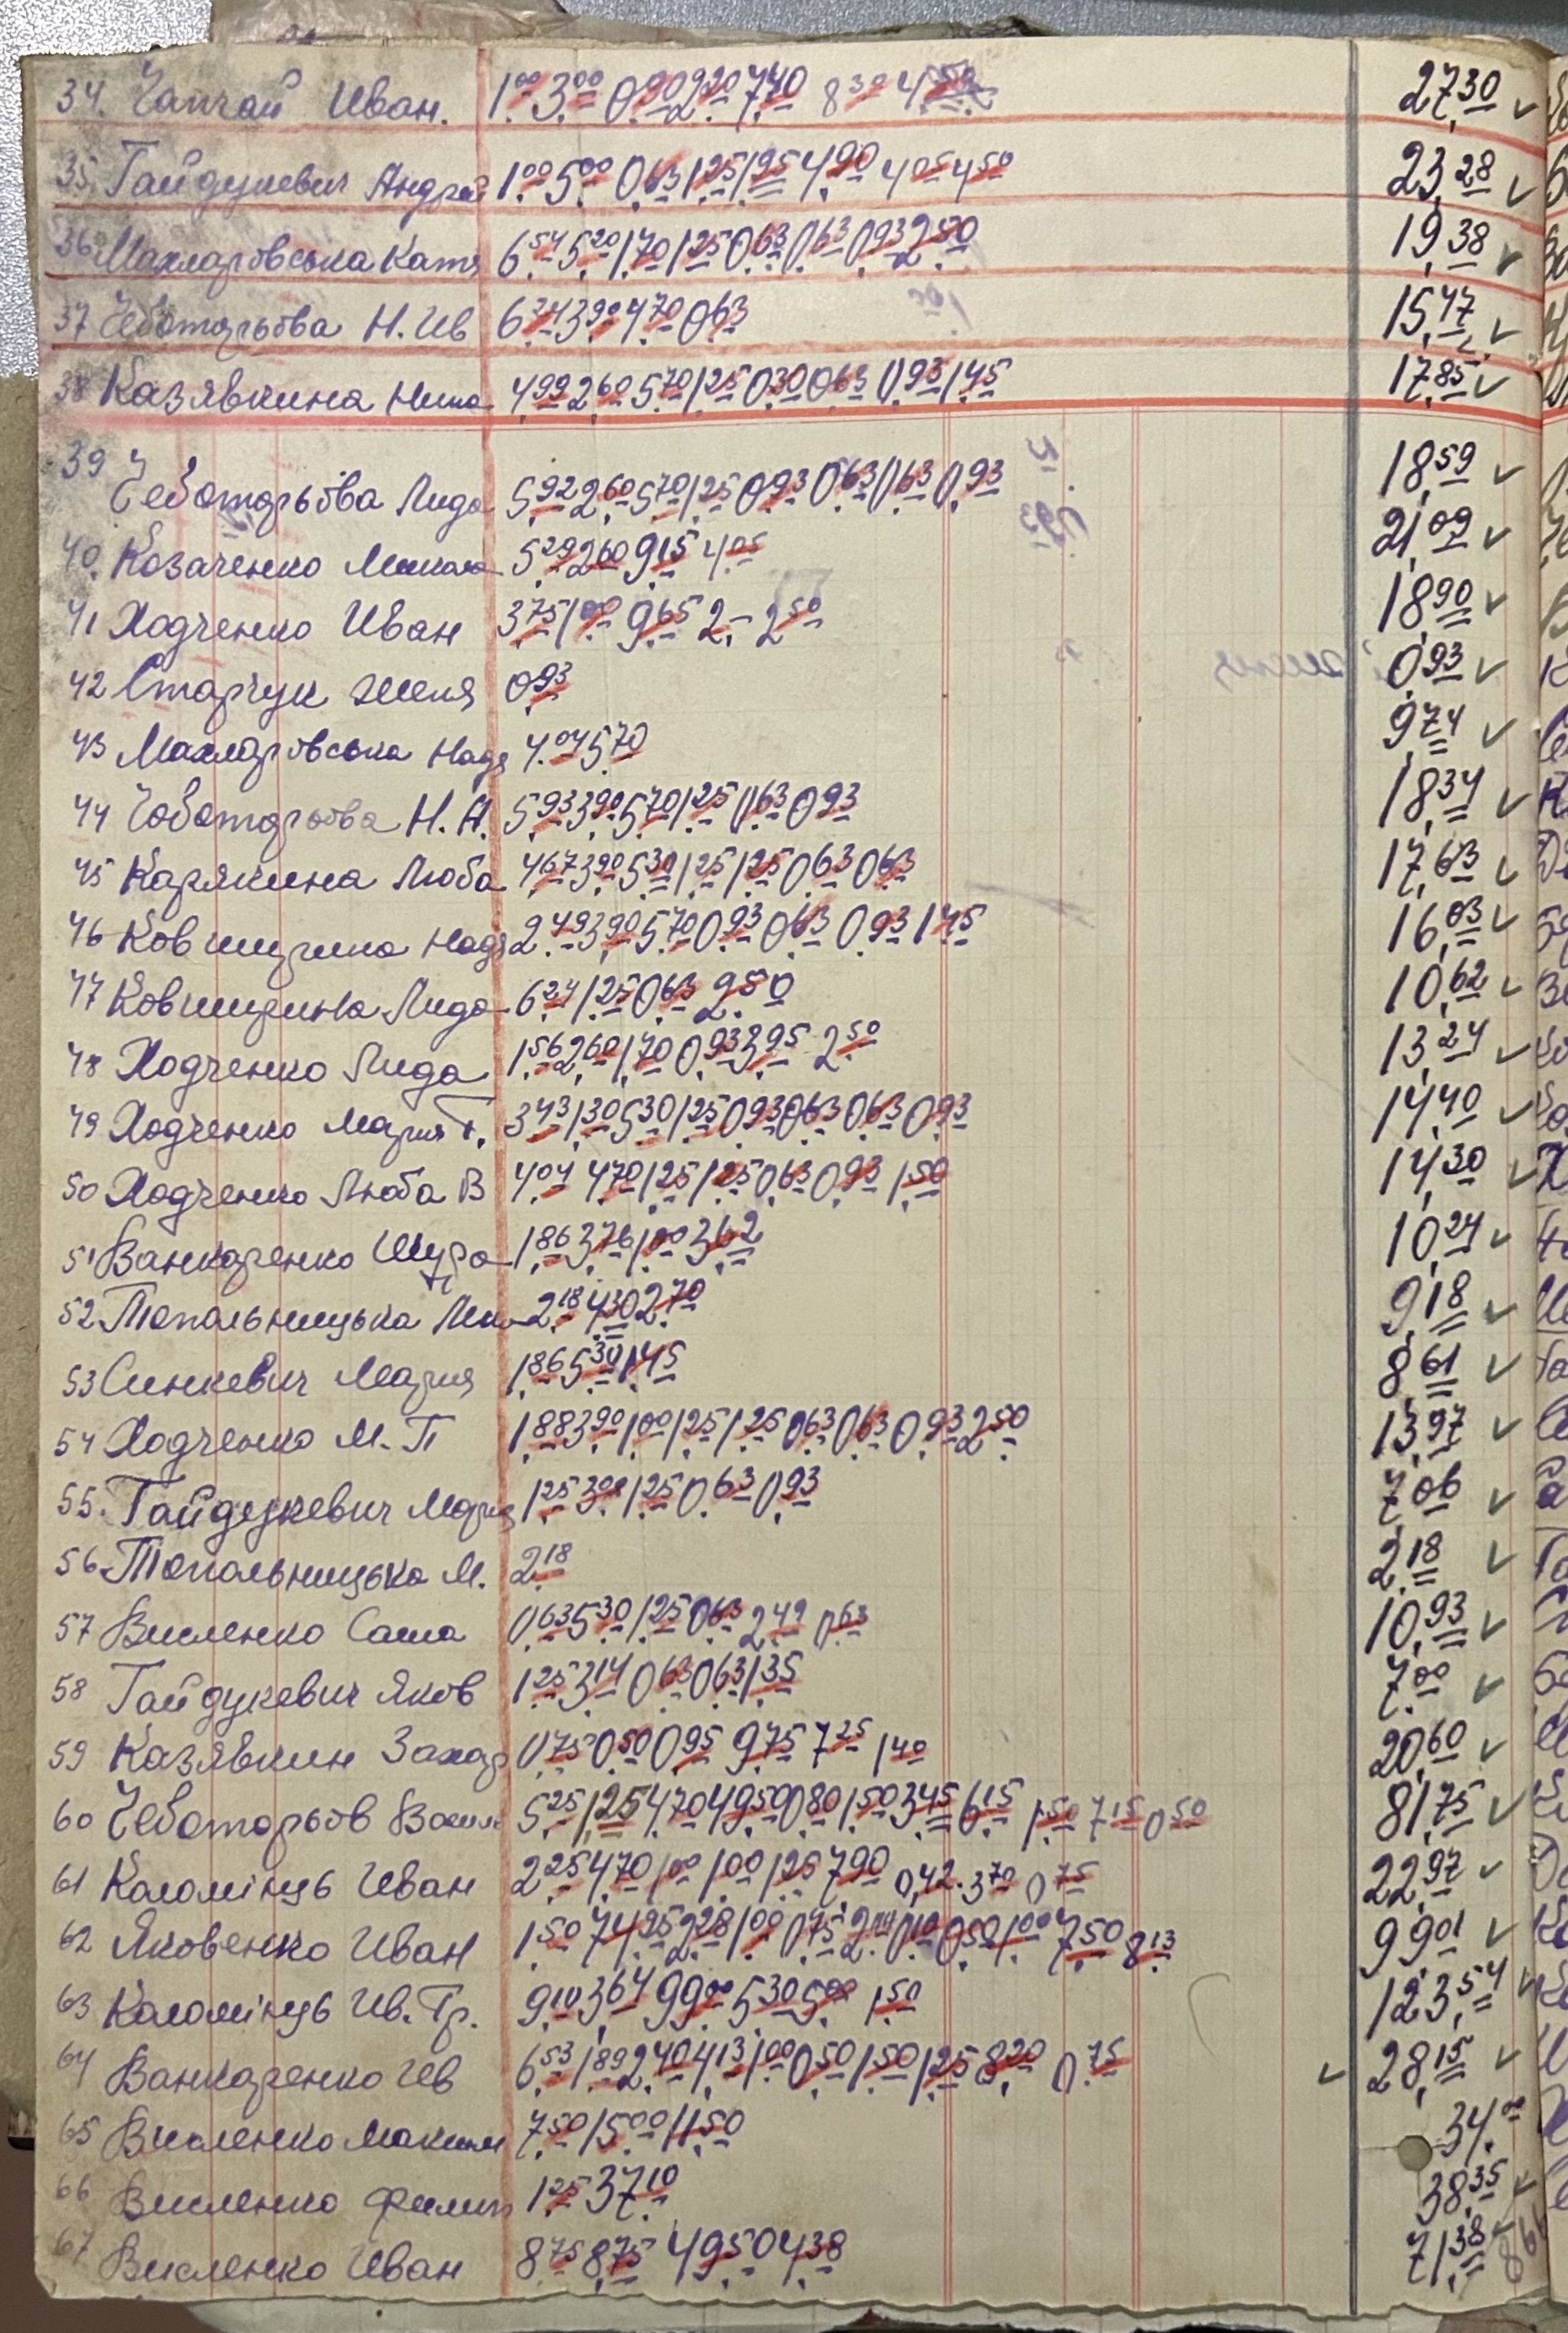 34. Чапчай Иван. 1.00 3.00 0.90 2.20 7.40 8 30 4.50 27,30 ✓
35. Гайдукевич Андрей 1.00 5.00 0,63 1.25 1.95 4.90 4 05 4 50 23,28 ✓
36 Махларовська Катя 6.54 5.20 1.70 1.25 0.63 0.63 0.93 2.50 19,38 ✓
37 Чеботарьова Н. Ив 6.24 3.90 4.70 0.63 15,47 ✓
38 Казявкина Нина 4.99 2.60 5.70 1.25 0.30 0.63 0.93 1.45 17,85 ✓
39 Чеботарьова Лида 5.92 2.60 5.70 1.25 0.93 0.63 0.63 0.93 18,59 ✓
40. Козаченко Микола 5.29 2.60 9.15 4.05 21,09 ✓
41 Ходченко Иван 3.75 1.00 9.65 2.- 2 50 18,90 ✓
42 Старчук Женя 0.93 0,93 ✓
43 Махларовська Надя 4.04 5.70 9,74 ✓
44 Чоботарьова Н. А. 5.93 3.90 5.70 1.25 0.63 0.93 18,34 ✓
45 Карякина Люба 4.67 3.90 5.30 1.25 1.25 0.63 0.63 17,63 ✓
46 Ковширина Надя 2.49 3.90 5.70 0.93 0.63 0.93 1.45 16,03 ✓
47 Ковширина Лида 6.24 1.25 0.63 2.50 10,62 ✓
48 Ходченко Лида 1.56 2.60 1.70 0.93 3.95 2.50 13,24 ✓
49 Ходченко Мария Т. 3.43 1.30 5.30 1.25 0.93 0.63 0.63 0.93 14,40 ✓
50 Ходченко Люба В 4.04 4.70 1.25 1.25 0.63 0.93 1.50 14,30 ✓
51 Ванкаренко Шура 1.86 3.76 1.00 3.62 10,24 ✓
52 Топольницька 2.18 4.30 2.70 9,18 ✓
53 Синкевич Мария 1.86 5.30 1.45 8,61 ✓
54 Ходченко М. П 1.88 3.90 1.00 1.25 1.25 0.63 0.63 0.93 2.50 13,97 ✓
55. Гайдукевич Мария 1.25 3.00 1.25 0.63 0.93 7,06 ✓
56 Топольницька М. 2.18 2,18 ✓
57 Висленко Саша 0.63 5.30 1.25 0.63 2.49 0.63 10,93 ✓
58 Гайдукевич Яков 1.25 3.14 0.63 0.63 1.35 7.00 ✓
59 Казявкин Захар 0.75 0.50 0.95 9.75 7.25 1 40 20,60 ✓
60 Чеботарьов Василь 5.25 1.25 4.70 49.50 0.80 1.50 3.45 6.15 1.50 7 15 0 50 81,75 ✓
61 Коломієць Иван 2.25 4.70 1.00 1.00 1.25 7.90 0,42. 3 70 0 75 22,97 ✓
62 Яковенко Иван 1.50 74.25 2.28 1.00 0.75 0.50 1.00 7.50 8 13 99,01 ✓
63 Коломієць Ив. Гр. 9.10 3.64 99.00 5.30 5.00 1.50 123,54 ✓
64 Ванкаренко Ив 6.53 1.89 2.40 4.13 1.00 0.50 1.50 1.25 8.20 0.75 ✓ 28,15 ✓
65 Висленко Максим 7.50 15.00 11.50 34.00
66 Висленко Филип 1.25 37.10 38.35 ✓
67 Висленко Иван 8.75 8.75 49.50 4.38 71,38 ✓